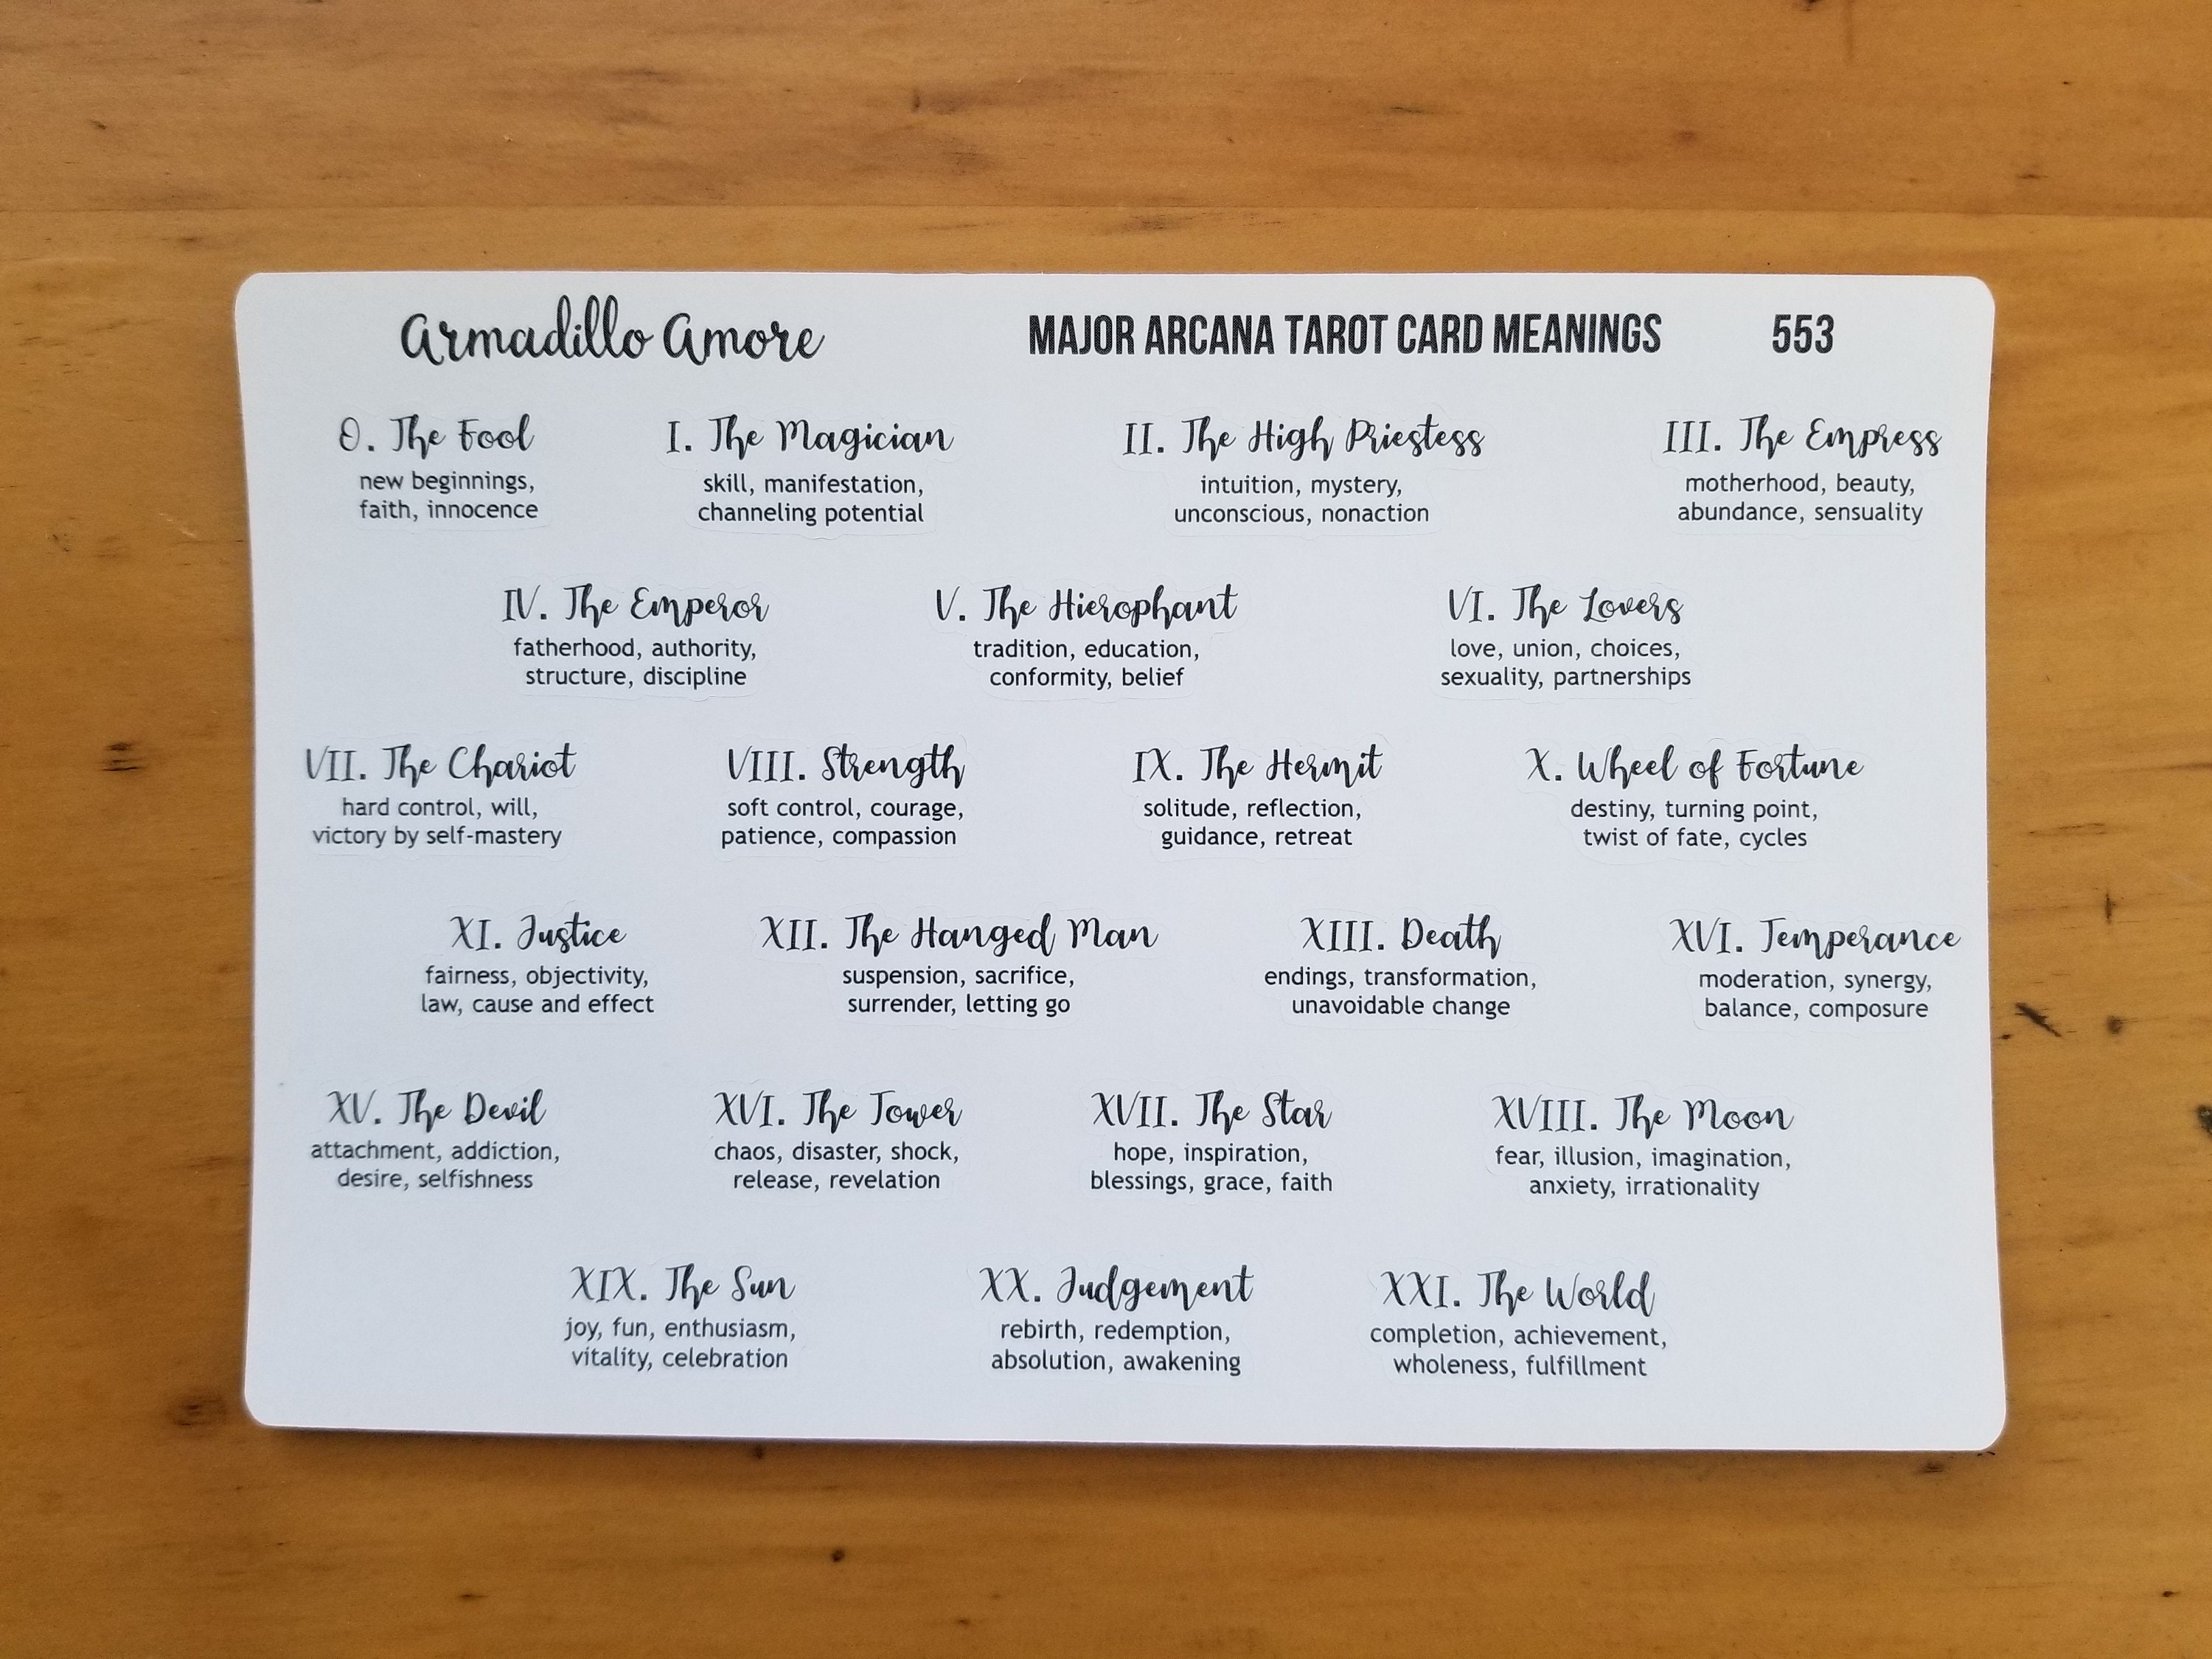 Armadillo Amore
MAJOR ARCANA TAROT CARD MEANINGS
553
0. The Fool
new beginnings,
faith, innocence
I. The Magician
skill, manifestation,
channeling potential
II. The High Priestess
intuition, mystery,
unconscious, nonaction
III. The Empress
motherhood, beauty,
abundance, sensuality
IV. The Emperor
fatherhood, authority,
structure, discipline
V. The Hierophant
tradition, education,
conformity, belief
VI. The Lovers
love, union, choices,
sexuality, partnerships
VII. The Chariot
hard control, will,
victory by self-mastery
VIII. Strength
soft control, courage,
patience, compassion
IX. The Hermit
solitude, reflection,
guidance, retreat
X. Wheel of Fortune
destiny, turning point,
twist of fate, cycles
XI. Justice
fairness, objectivity,
law, cause and effect
XII. The Hanged Man
suspension, sacrifice,
surrender, letting go
XIII. Death
endings, transformation,
unavoidable change
XVI. Temperance
moderation, synergy,
balance, composure
XV. The Devil
attachment, addiction,
desire, selfishness
XVI. The Tower
chaos, disaster, shock,
release, revelation
XVII. The Star
hope, inspiration,
blessings, grace, faith
XVIII. The Moon
fear, illusion, imagination,
anxiety, irrationality
XIX. The Sun
joy, fun, enthusiasm,
vitality, celebration
XX. Judgement
rebirth, redemption,
absolution, awakening
XXI. The World
completion, achievement,
wholeness, fulfillment